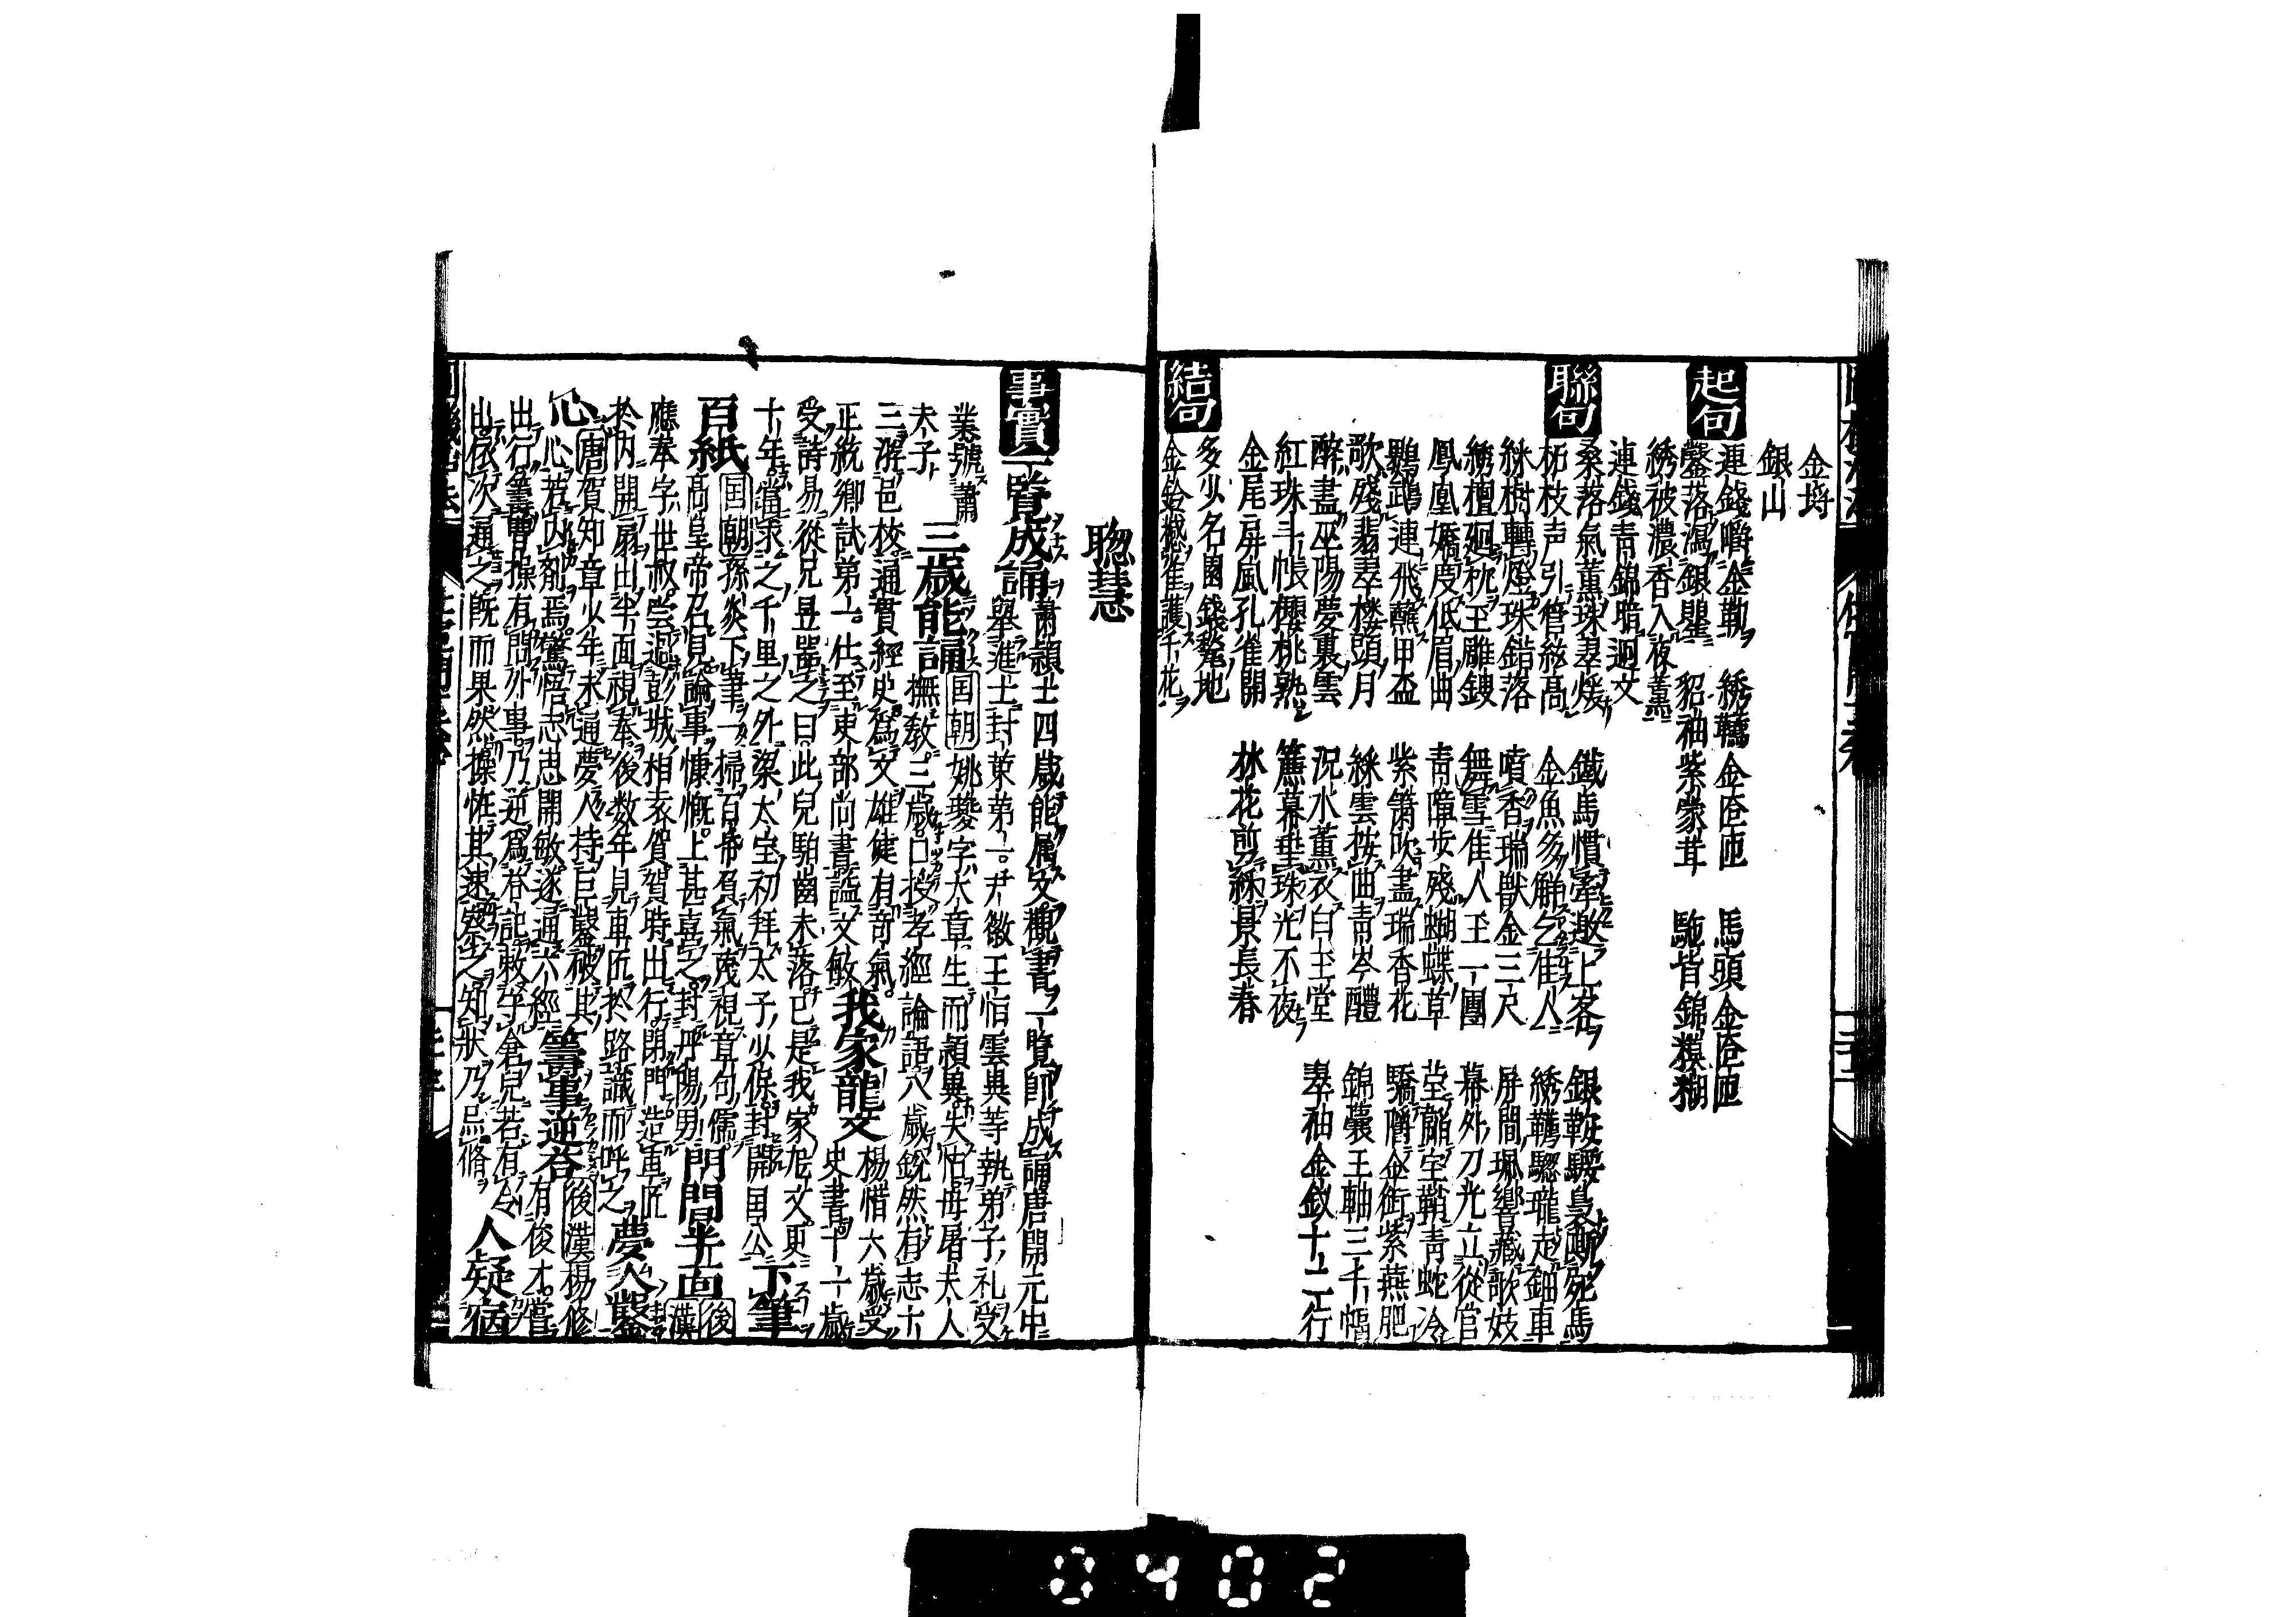 金埒
銀山
起句
連錢嚼金勒
鑿落瀉銀罌
綉韉金匼匝
貂袖紫蒙茸
馬頭金匼匝
駞背錦模糊
綉被濃香入夜薰
連錢青錦暗迴文
聯句
桑落氣薰珠翠煖
鐵馬慣牽邀上客
銀鞍騕褭嘶宛馬
柘枝声引管絃高
金魚多觧乞佳人
綉韉驄瓏走鈿車
絑樹轉燈珠錯落
噴香瑞獸金三尺
屏間珮響藏歌妓
綉檀廻枕玉雕鎪
舞雪佳人玉一團
幕外刀光立從官
鳳凰嬌度低眉曲
青障步殘蝴蝶草
鸚鵡連飛蘸甲盃
紫簫吹盡瑞香花
驕嚼金銜紫燕肥
歌殘翡翠樓頭月
絑雲按曲青岑醴
錦囊玉軸三千幅
醉盡巫陽夢裏雲
沉水薰衣白玉堂
翠袖金釵十二行
紅珠斗帳櫻桃熟
簾幕垂珠光不夜
金尾屏風孔雀開
林花剪綵景長春
多少名園錢㼽地
結句
金鈴檻雀護千花
聦慧
事實
一覧成誦
蕭頴士四歳能属文觀書一覧即成誦唐開元中
舉進士封䇿第一尹徵王恒雲異等執弟子礼受
業號蕭
夫子
三歳能誦
囯朝
姚䕫字大章生而頴異失怙母屠夫人
撫教三歳口授孝經論語八歳鋭然有志十
三游邑校通貫經史爲文雄健有竒氣
正統卿試第一仕至吏部尚書謚文敏
我家龍文
楊愔六歳受
史書十一歳
受詩易從兄昱器之曰此兒駒齒未落已是我家龙文更
十年當求之千里之外梁太宝初拜太子少保封開囯公
下筆
百紙
囯朝
孫炎下筆一掃百帋負氣茂視章句儒
髙皇帝召見論事慷慨上甚喜之封丹陽男
門間半面
後
漢
應奉字世叔嘗過彭城相袁賀賀時出行閉門造車匠
於内開扇出半面視奉後数年見車匠於路識而呼之
夢人鑿
心
唐
賀知章少年未通夢人持巨鑿破其
心若内剤焉驚悟志思開敏遂通六經
籌事逆荅
後漢
楊修
有俊才當
出行籌曹操有問外事乃逆爲荅記敕守舍兒若有令
出依次通之旣而果然操怪其速察之知狀乃忌脩
人疑宿